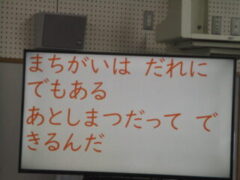 まちがいは だれに
でもある
あとしまつだって で
きるんだ